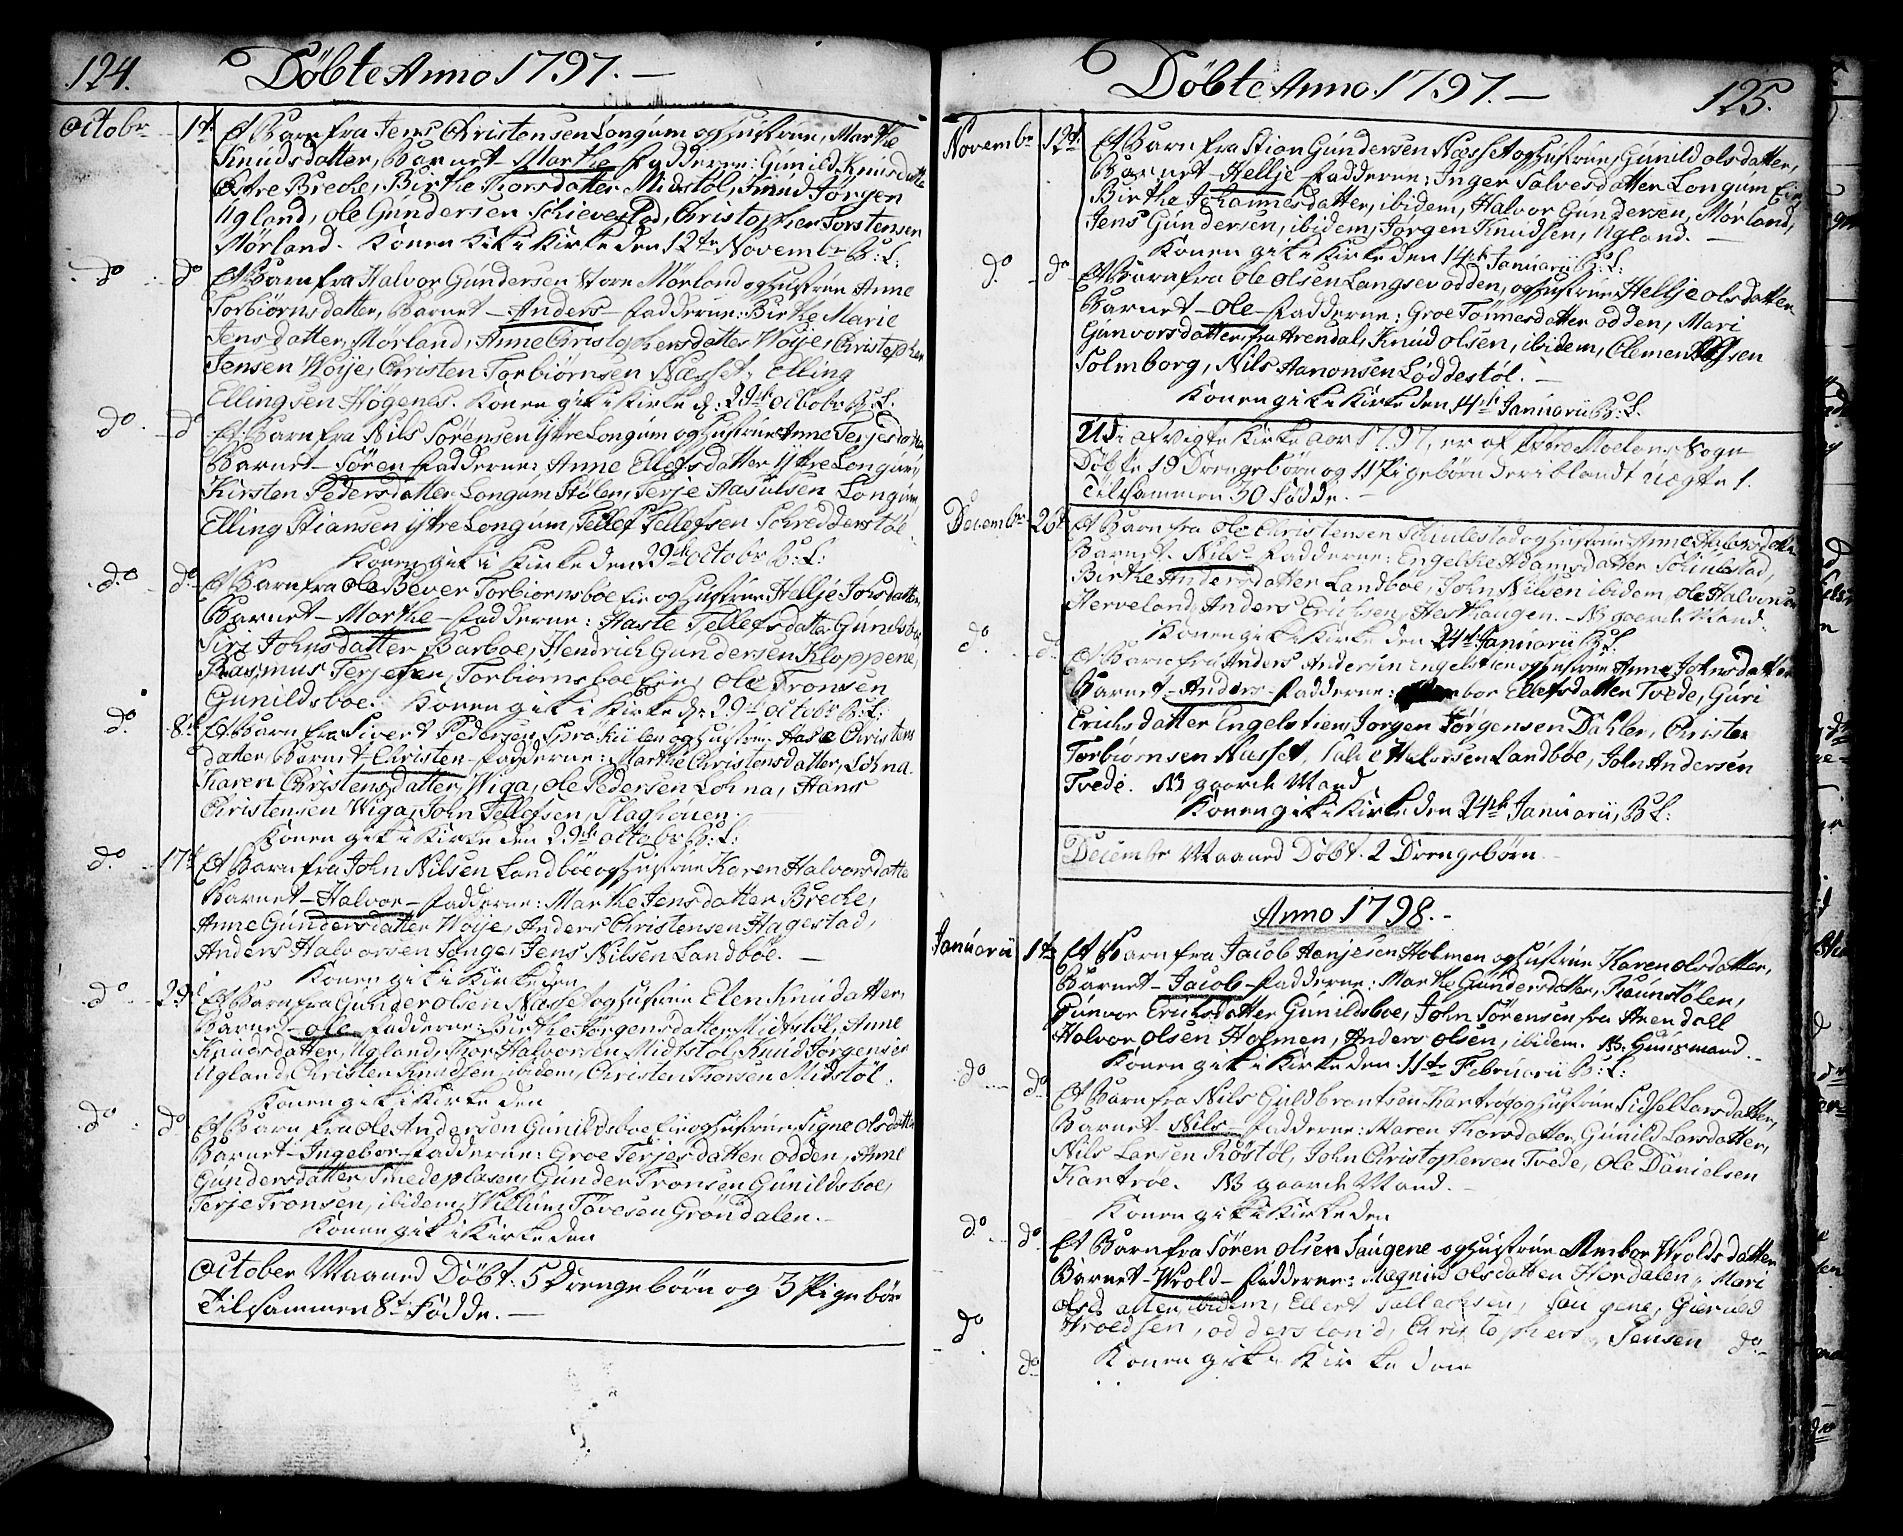 124. Döbte Anno 1797. —
Octobr 1t Et Barn fra Jens Christensen Longum og Hustrue, Marthe
Knudsdatter, Barnet Marthe Fadderne: Gunild Knusdatte
Østre Breche, Birthe Thorsdatter Midstöl, Knud Jörgen
Ugland, Ole Gundersen Schievestad, Christopher Torstensen
Mörland. Konen gik i Kirke den 12te Novembr B: L:
do do Et Barn fra Halvor Gundersen Store Mörland og Hustrue Anne
Torbiörnsdatter, Barnet — Anders — Fadderne: Birthe Marie
Jensdatter, Mörland, Anne Christophersdatter Woije, Christopher
Jensen Woije, Christen Torbiörnsen Næsset, Elling
Ellingsen Høgenes. Konen gik i Kirke d: 29de Octobr B: L.
do do Et Barn fra Nils Sörensen Ytre Longum og Hustrue Anne Terjesdatter
Barnet — Sören Fadderne: Anne Ellefsdatter Ytre Longum,
Kirsten Pedersdatter Longum Stölen, Terje Aasulsen Longum,
Elling Stiansen Ytre Longum, Tellef Tellefsen Schredderstöl.
Konen gik i Kirke den 29de Octobr B: L:
do do Et Barn fra Ole Bever Torbiornsboe Eie og Hustrue Hellje Johsdatter,
Barnet — Marthe — Fadderne: Hasle Tellefsdatter Gunildsboe
Siri Johnsdatter Barboe, Hendrich Gundersen Kloppene,
Rasmus Terjesen, Torbiornsboe Eie, Ole Tronsen
Gunildsboe. Konen gik i Kirke d: 29de Octobr B: L:
do 8de Et Barn fra Sivert Pedersen og Hustrue Aase Christens
datter, Barnet Christen — Fadderne: Marthe Christensdatter, Lohna.
Karen Christensdatter, Wiga, Ole Pedersen Lohna, Hans
Christensen Wiga, John Tellefsen, Slaghouen.
Konen gik i Kirke den 29de Octobr B: L:
do 17de Et Barn fra John Nilsen Landböe og Hustrue Karen Halvorsdatte
Barnet — Halvor — Fadderne: Marthe Jensdatter Breche,
Anne Gundersdatter Woije, Anders Christensen Hagestad,
Anders Halvorsen Songe, Jens Nilsen Landböe. —
Konen gik i Kirke den
do 29de Et Barn fra Gunder Olsen Næsset og Hustrue Elen Knudatter,
Barnet — Ole — Fadderne: Birthe Jörgensdatter Midtstöl, Anne
Knudsdatter, Ugland, Thor Halvorsen Midtstöl, Knud Jörgensen
Ugland, Christen Knudsen, ibidem, Christen Thorsen Midstöl.
Konen gik i Kirke den
do do Et Barn fra Ole Andersen Gunildsboe Eie og Hustrue Signe Olsdatter
Barnet — Ingebor — Fadderne: Groe Terjesdatter Odden, Anne
Gundersdatter Smedeplasen, Gunder Tronsen Gunildsboe,
Terje Tronsen, ibidem, Willum Tovesen Gröndalen. —
Konen gik i Kirke den
October Maaned Döbt: 5 Drengebörn og 3 Pigebör
Tilsammen 8t Födde. —
Döbte Anno 1797. — 125.
Novembr 12te Et Barn fra Stian Gundersen Næsset og Hustrue, Gunild Olsdatter,
Barnet — Hellje Fadderne: Inger Salvesdatter Longum Eie,
Birthe Johannesdatter, ibidem, Halvor Gundersen, Mörland,
Jens Gundersen, ibidem, Jörgen Knudsen, Ugland. —
Konen gik i Kirke den 14de Januarii B: L:
do do Et Barn fra Ole Olsen Langsev Odden, og Hustrue Hellje Olsdatter
Barnet — Ole — Fadderne: Groe Tönnesdatter Odden, Mari
Gunvorsdatter, fra Arendal, Knud Olsen, ibidem, Clemen Olsen
Solmborg, Nils Aanonsen Löddestöl. —
Konen gik i Kirke den 14de Januarii B: L.
Udi afvigte Kirke aar 1797, er af Östre Moelans Sogn
Döbte 19 Drengebörn og 11 Pigebörn deriblandt Uægte 1.
Tilsammen 30 Födde. —
Decembr 26de Et Barn fra Ole Christensen Schiulestad og Hustrue Anne Halvorsdatter
Barnet — Nils — Fadderne: Engelche Adamsdatter Schiulestad,
Birthe Andersdatter Landboe, John Nilsen ibidem, Ole Halvorsen
Herveland, Anders Erichsen, Hesthaugen. — NB gaarde Mand.
Konen gik i Kirke den 24de Januarii B: L:
do do Et Barn fra Anders Andersen Engelstien og Hustrue Anne Johnsdatter
Barnet — Anders — Fadderne: Ellefsdatter Tvede, Guri
Erichsdatter Engelstien, Jorgen Jörgensen Dahlen, Christen
Torbiornsen Næsset, Salve Halvorsen Landböe, John Andersen
Tvede. NB gaarde Mand
Konen gik i Kirke den 24de Januarii, B: L:
Decembr Maaned Döbt. 2 Drengebörn. —
Anno 1798. —
Januarii 1te Et Barn fra Jacob Henjesen Holmen og Hustrue Karen Olsdatter,
Barnet — Jacob — Fadderne: Marthe Gundersdatter, Raunstölen,
Gunvor Erichsdatter Gunildsboe, John Sörensen fra Arendall
Halvor Olsen Holmen, Anders Olsen, ibidem. NB. Huusmand. —
Konen gik i Kirke den 11te Februarii B: L:
do do Et Barn fra Nils Guldbrantsen Kantröe og Hustrue Sidsel Larsdatter,
Barnet — Nils — Fadderne: Maren Thorsdatter, Gunild Larsdatter,
Nils Larsen Röstöl, John Christophersen Tvede, Ole Danielsen
Kantröe. NB gaarde Mand. —
Konen gik i Kirke den
do do Et Barn fra Sören Olsen Saugene og Hustrue Ambor Wroldsdatter
Barnet — Wrold — Fadderne: Magnild Olsdatter Hordalen, Mari
Olsdatter, ibidem, Ellert Sallachsen, Saugene,
Wroldsen, Odderslond, Christophers Jensen do —
do do Konen gik i Kirke den